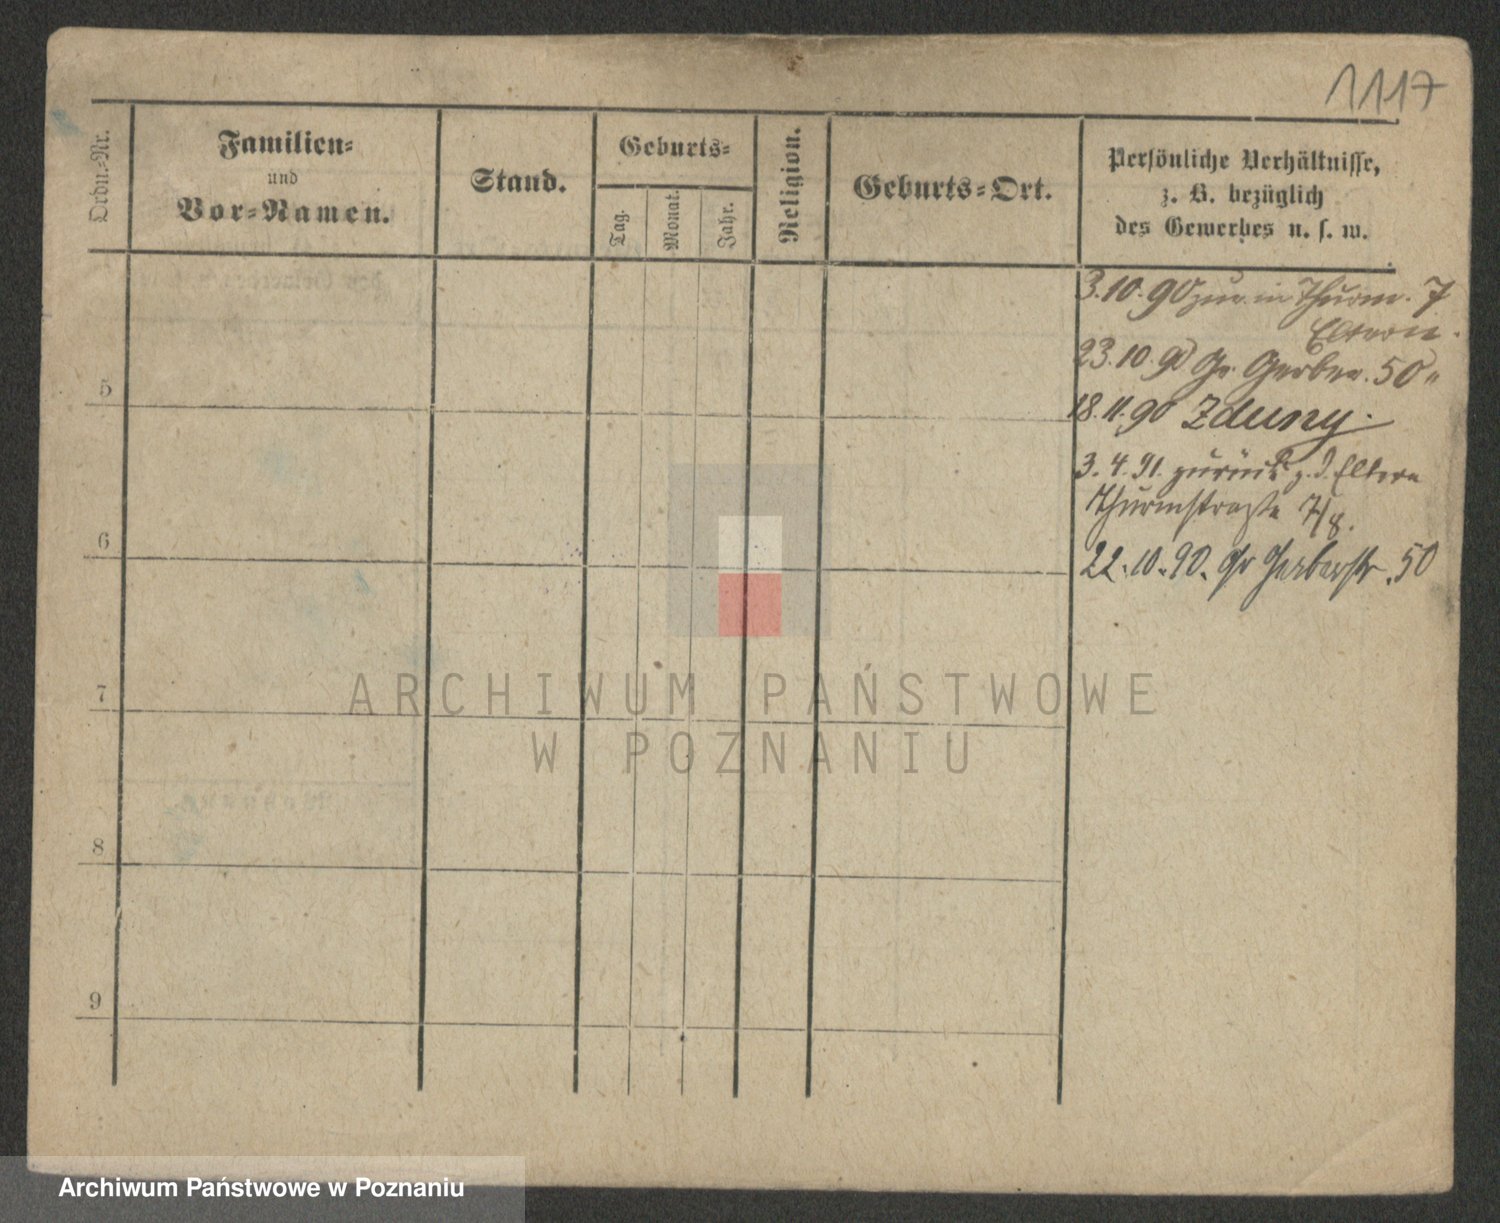 1117
Ordn.-Nr.
Familien-
und
Vor-Namen.
Stand.
Geburts-
Tag.
Monat.
Jahr.
Religion.
Geburts-Ort.
Persönliche Verhältnisse,
z. B. bezüglich
des Gewerbes u. s. w.
3.10.90 zur. in Thurm. 7
Eltern.
23.10.90 Gr. Gerber. 50"
18.11.90 Zduny.
3.4.91. zurück z. d. Eltern
Thurmstraße 7/8.
22.10.90. Gr Gerberstr. 50
5
6
7
8
9
ARCHIWUM PAŃSTWOWE
W POZNANIU
Archiwum Państwowe w Poznaniu